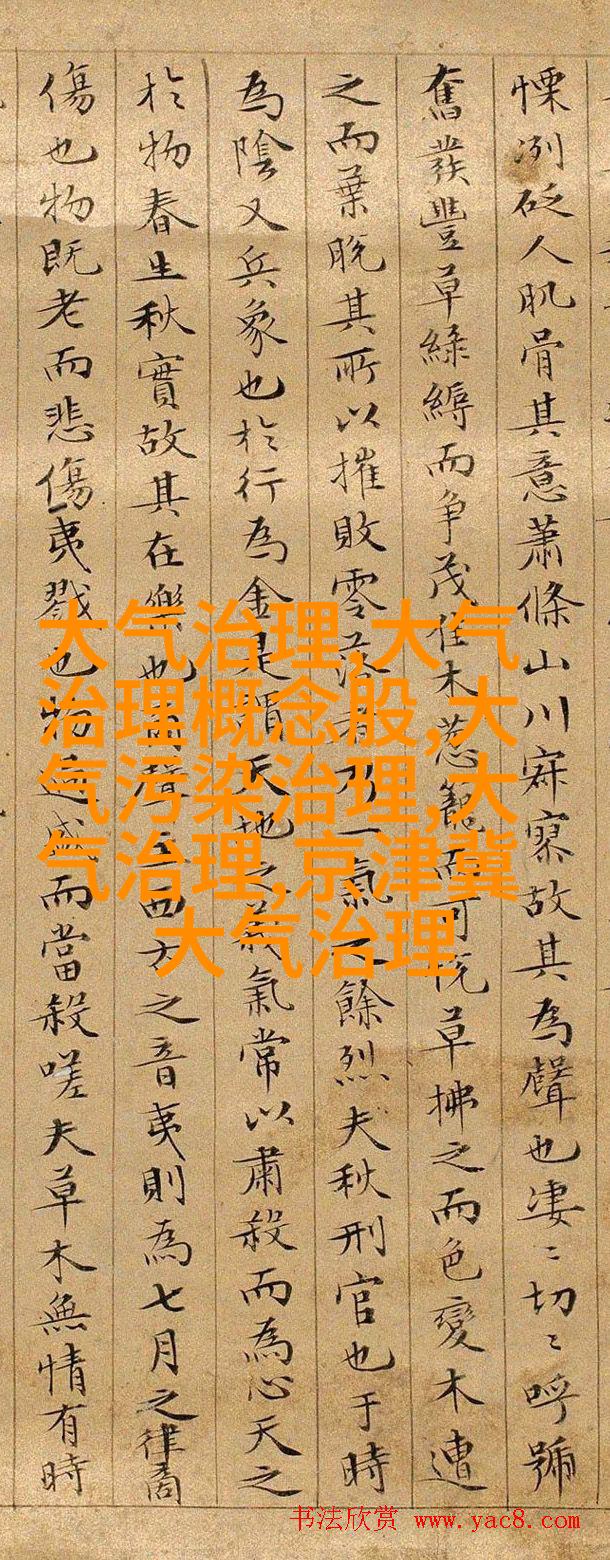 慄冽砭人肌骨其意蕭條山川寂寥故其為聲也凄〻切〻呼號
奮發豐草綠縟而争茂佳木葱籠而可悅草拂之而色變木遭
之而葉脫其所以摧敗零落者乃一氣之餘烈夫秋刑官也于時
為陰又兵象也於行為金是謂天地之義氣常以肅殺而為心天之
於物春生秋實故其在樂也商聲主西方之音夷則為七月之律商
傷也物既老而悲傷夷戮也物過盛而當殺嗟夫草木無情有時
大气治理,大气
治理概念股,大
气污染治理,大
气治理,京津冀
大气治理
书法欣赏 www.yac8.com